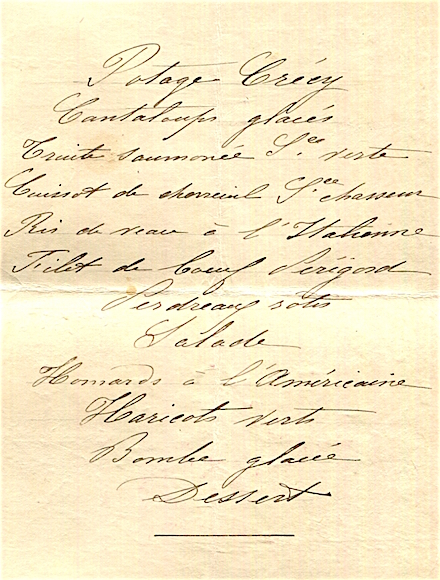 Potage Crécy
Cantaloups glacés
Truite saumonée Sce verte
Cuissot de chevreuil Sce chasseur
Ris de veau à l'Italienne
Filet de boeuf Périgord
Perdreaux rôtis
Salade
Homards à l'Américaine
Haricots verts
Bombe glacée
Dessert